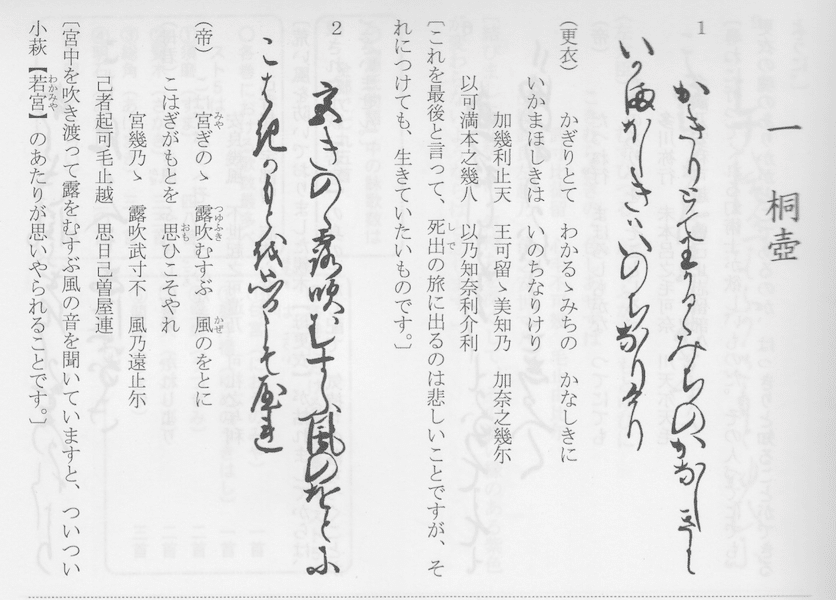 一 桐壺
1
かきりとてわかるゝみちのかなしきに
いかまほしきはいのちなりけり
(更衣) かぎりとて わかるゝみちの かなしきに
いかまほしきは いのちなりけり
加幾利止天 王可留ゝ美知乃 加奈之幾尓
以可満本之幾八 以乃知奈利介利
〔これを最後と言って、死出の旅に出るのは悲しいことですが、そ
しで
れにつけても、生きていたいものです。〕
2
宮きのゝ露吹むすふ風のをとに
こはきかもとを思ひこそやれ
(帝) 宮ぎのゝ 露吹むすぶ 風のをとに
みや つゆふき かぜ
こはぎがもとを 思ひこそやれ
おも
宮幾乃ゝ 露吹武寸不 風乃遠止尓
己者起可毛止越 思日己曽屋連
〔宮中を吹き渡って露をむすぶ風の音を聞いていますと、ついつい
小萩【若宮】のあたりが思いやられることです。〕
わかみや